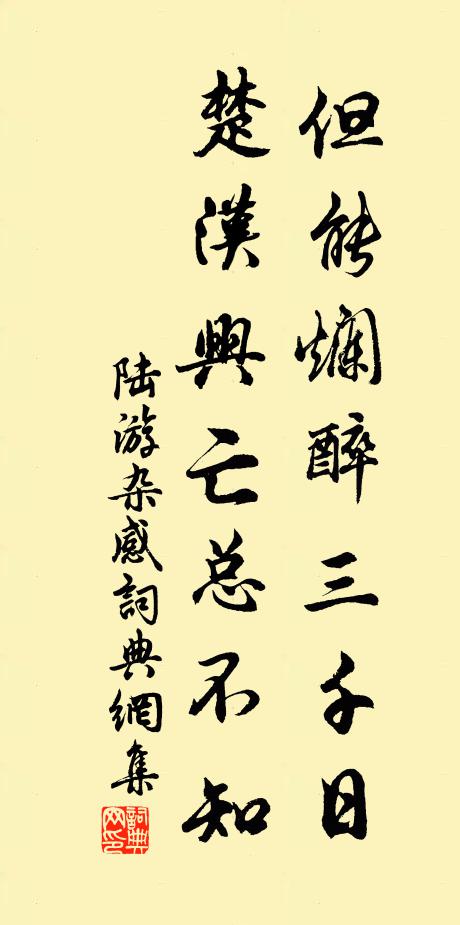 但能爛醉三千日
楚漢興亡总不知
陆游杂感詞典網集
詞典
网印